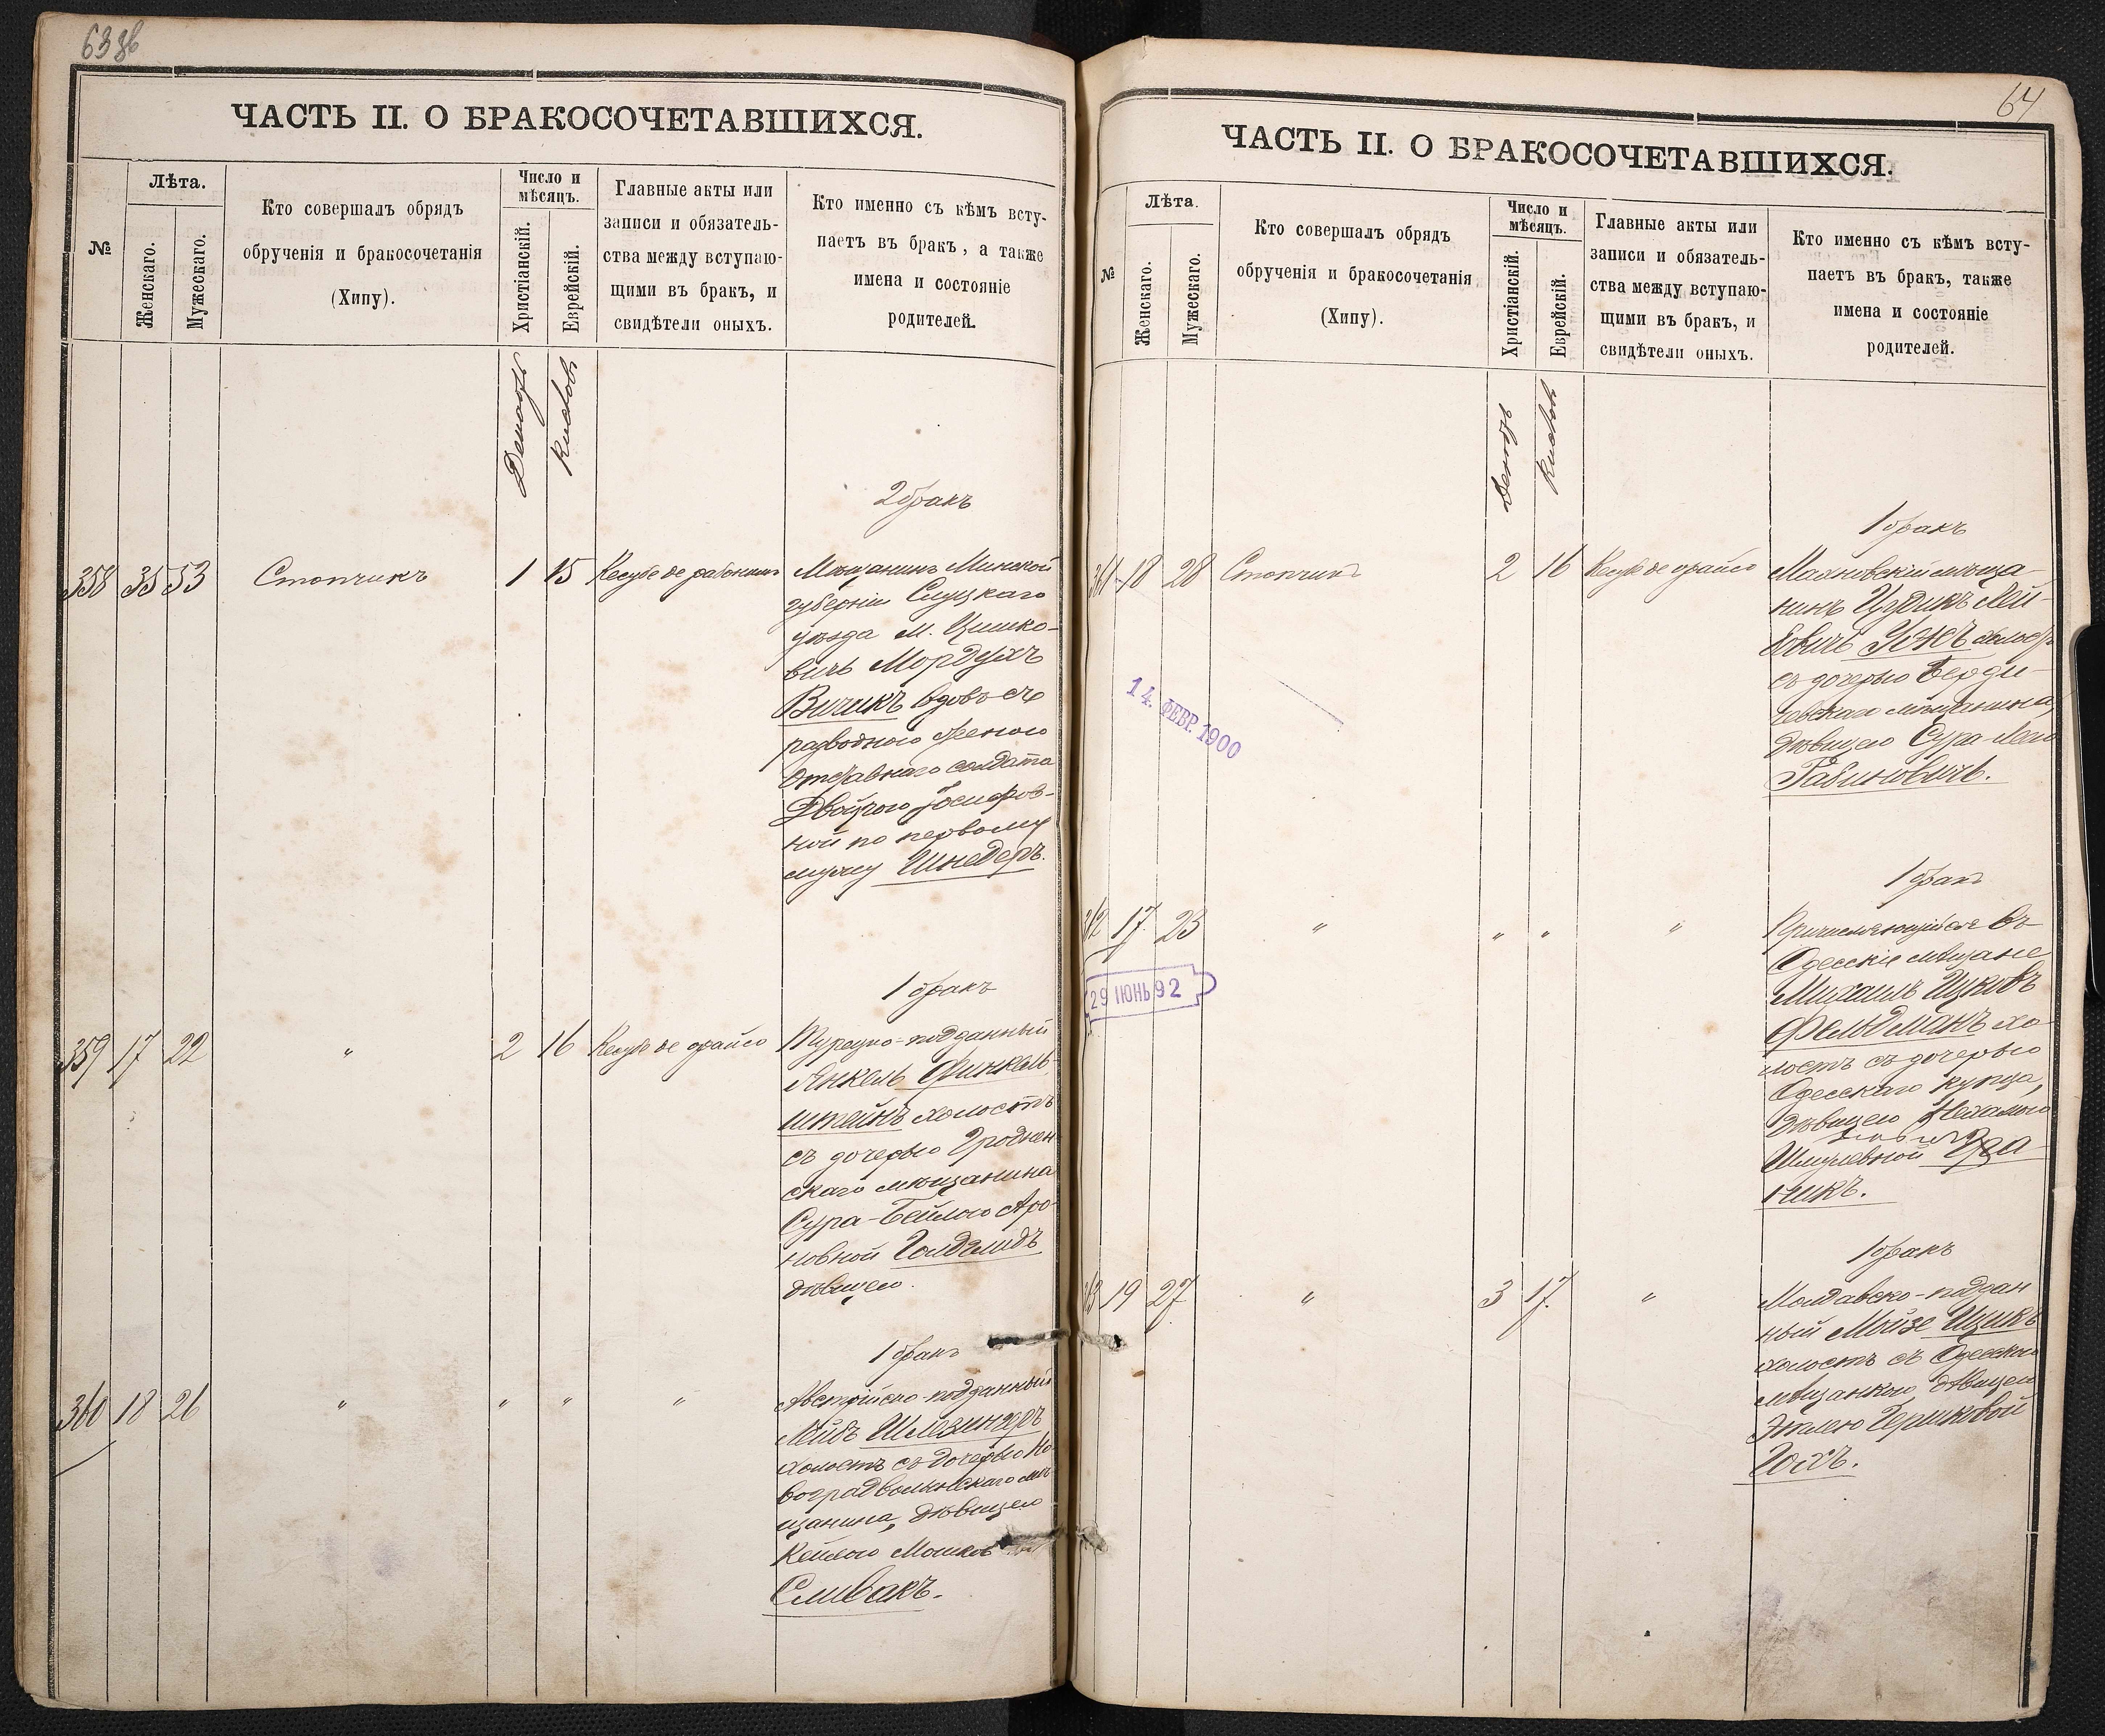 63 зв
ЧАСТЬ II. О БРАКОСОЧЕТАВШИХСЯ.
№
Лѣта.
Женскаго.
Мужескаго.
Кто совершалъ обрядъ
обрученія и бракосочетанія
(Хипу).
Число и
мѣсяцъ.
Христіанскій.
Еврейскій.
Главные акты или
записи и обязатель-
ства между вступаю-
щими въ бракъ, и
свидѣтели оныхъ.
Кто именно съ кѣмъ всту-
паетъ въ бракъ, а также
имена и состояніе
родителей.
Декабрь
Кислевъ
2 бракъ
358 35 53 Стопчикъ 1 15 Кесубе де
Мѣщанинъ Минской
губерніи Слуцкаго
уѣзда М.
Мордухъ
Вичикъ вдовъ съ
разводною женою
отставнаго солдата
ной по первому
мужу Шнедеръ.
1 бракъ
359 17 22 " 2 16 Кесубе де
Турецко-подданный
Янкель Финкель-
штейнъ холостъ
съ дочерью Гроднен
скаго мѣщанина
Сура-Бейлою Аро-
новной Голдшмидъ
дѣвицею.
1 бракъ
360 18 26 " " " "
Австрійско-подданный
Лейбъ Шлезингеръ
холостъ съ дочерью Но
воградволынскаго мѣ
щанина, дѣвицею
Кейлою Мошков
Спивакъ.
64
ЧАСТЬ II. О БРАКОСОЧЕТАВШИХСЯ.
№
Лѣта.
Женскаго.
Мужескаго.
Кто совершалъ обрядъ
обрученія и бракосочетанія
(Хипу).
Число и
мѣсяцъ.
Христіанскій.
Еврейскій.
Главные акты или
записи и обязатель-
ства между вступаю-
щими въ бракъ, и
свидѣтели оныхъ.
Кто именно съ кѣмъ всту-
паетъ въ бракъ, также
имена и состояніе
родителей.
Декабрь
Кислевъ
1 бракъ
361 18 28 Стопчикъ 2 16 Кесубе де
Маяновскій мѣща-
нинъ Цудикъ Лей-
бовичъ
съ дочерью Берди-
чевскаго мѣщанина,
дѣвицею Сура-Леею
Рабиновичъ.
14. ФЕВР. 1900
1 бракъ
362 17 23 " " " "
Причисляющійся въ
Одесскіе мѣщане
Михаилъ Ицковъ
Фельдманъ хо-
лостъ съ дочерью
Одесскаго купца,
дѣвицею Нехамою
Шмулевной
никъ.
29 ІЮНЬ 92
1 бракъ
363 19 27 " 3 17. "
Молдавско-поддан
ный Мойзе Ицикъ
холостъ съ Одесскою
мѣщанкою, дѣвицею
Этлею Гершковой